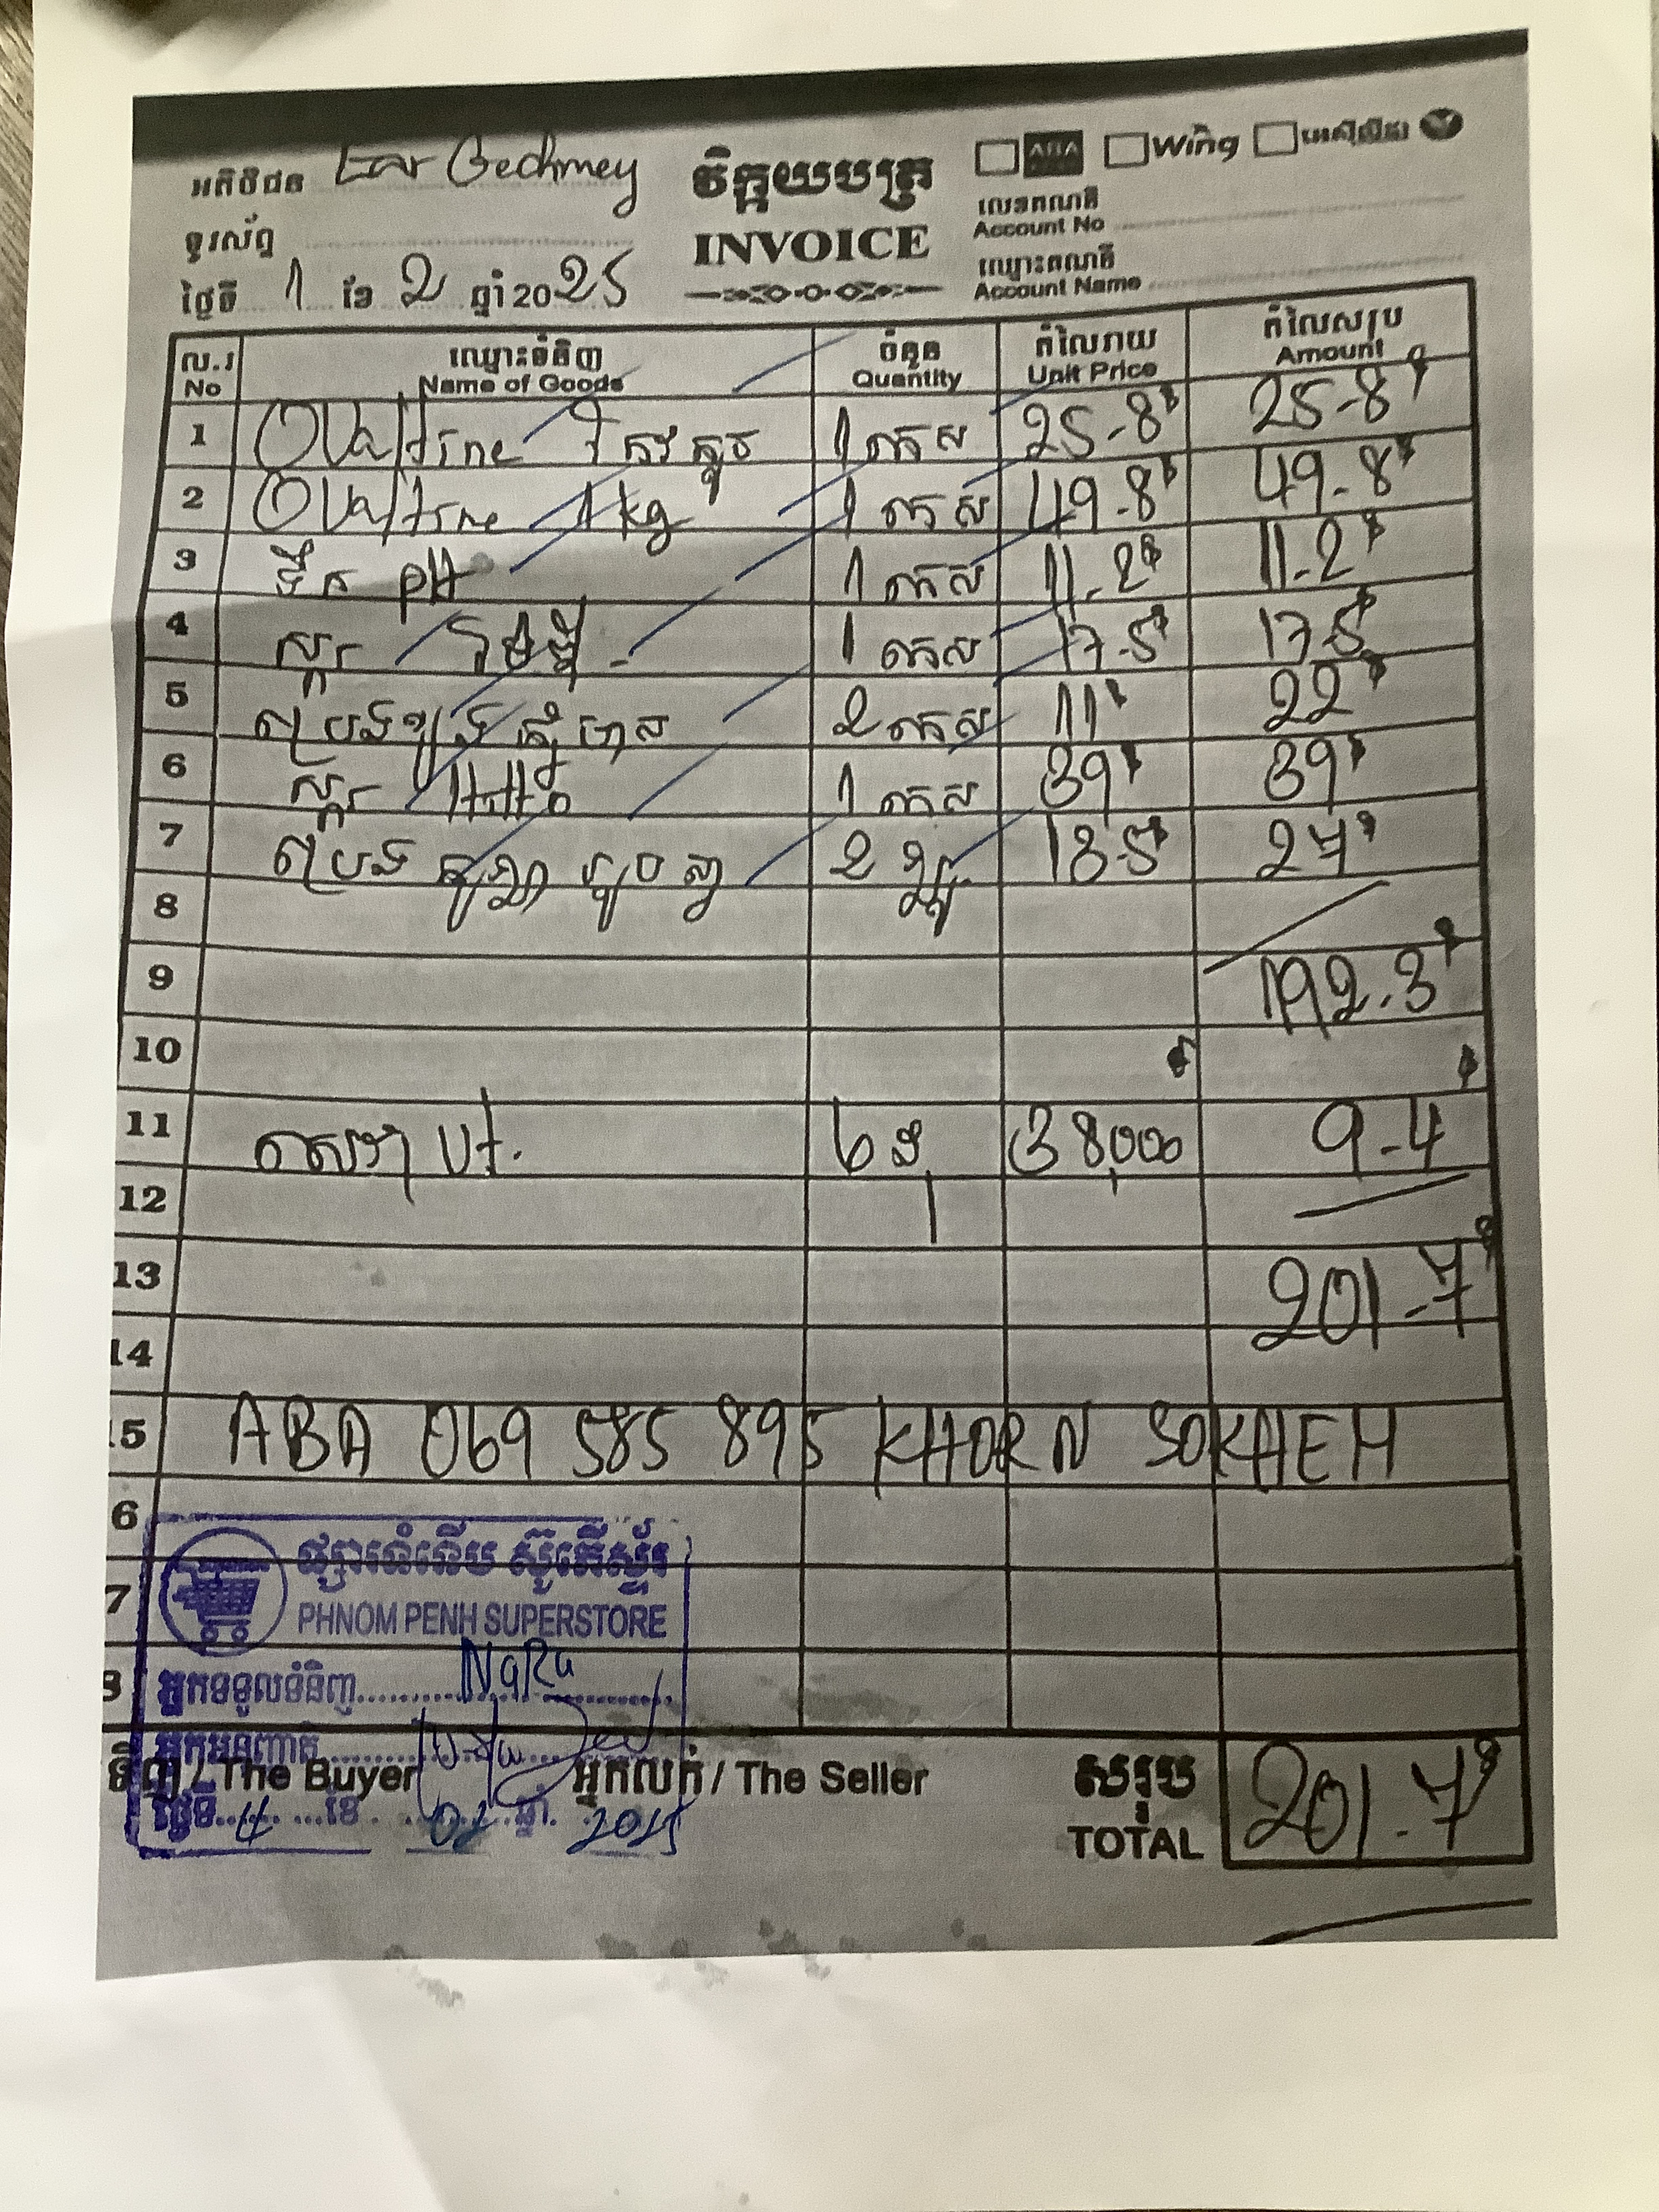 អតិថិជន Ear Gechmey
វិក្កយបត្រ
INVOICE
ABA Wing
ទូរស័ព្ទ
លេខគណនី
Account No
ថ្ងៃទី 1 ខែ 2 ឆ្នាំ 2025
ឈ្មោះគណនី
Account Name
ល.រ ឈ្មោះទំនិញ ចំនួន តំលៃរាយ តំលៃសរុប
No Name of Goods Quantity Unit Price Amount
1 Ovaltine 1 កេស 25-8$ 25-8$
2 Ovaltine 1kg 1 កេស 49-8$ 49-8$
3 ទឹក PH 1 កេស 11-2$ 11-2$
4 ស្ករ 1 កេស 17-5$ 17-5$
5 2 កេស 11$ 22$
6 ស្ករ 1 កេស 39$ 39$
7 2 13-5$ 27$
8
9 192.3$
10
11 6 38,000 9-4
12
13 201-7$
14
15 ABA 069 585 895 KHORN SOKHEH
6
ផ្សារទំនើប ស៊ូភើស្ទ័រ
7 PHNOM PENH SUPERSTORE
8 អ្នកទទួលទំនិញ NaRu
អ្នកអនុញ្ញាត
ទិញ / The Buyer អ្នកលក់ / The Seller សរុប 201-7$
ថ្ងៃទី 4 ខែ 02 ឆ្នាំ 2025 TOTAL